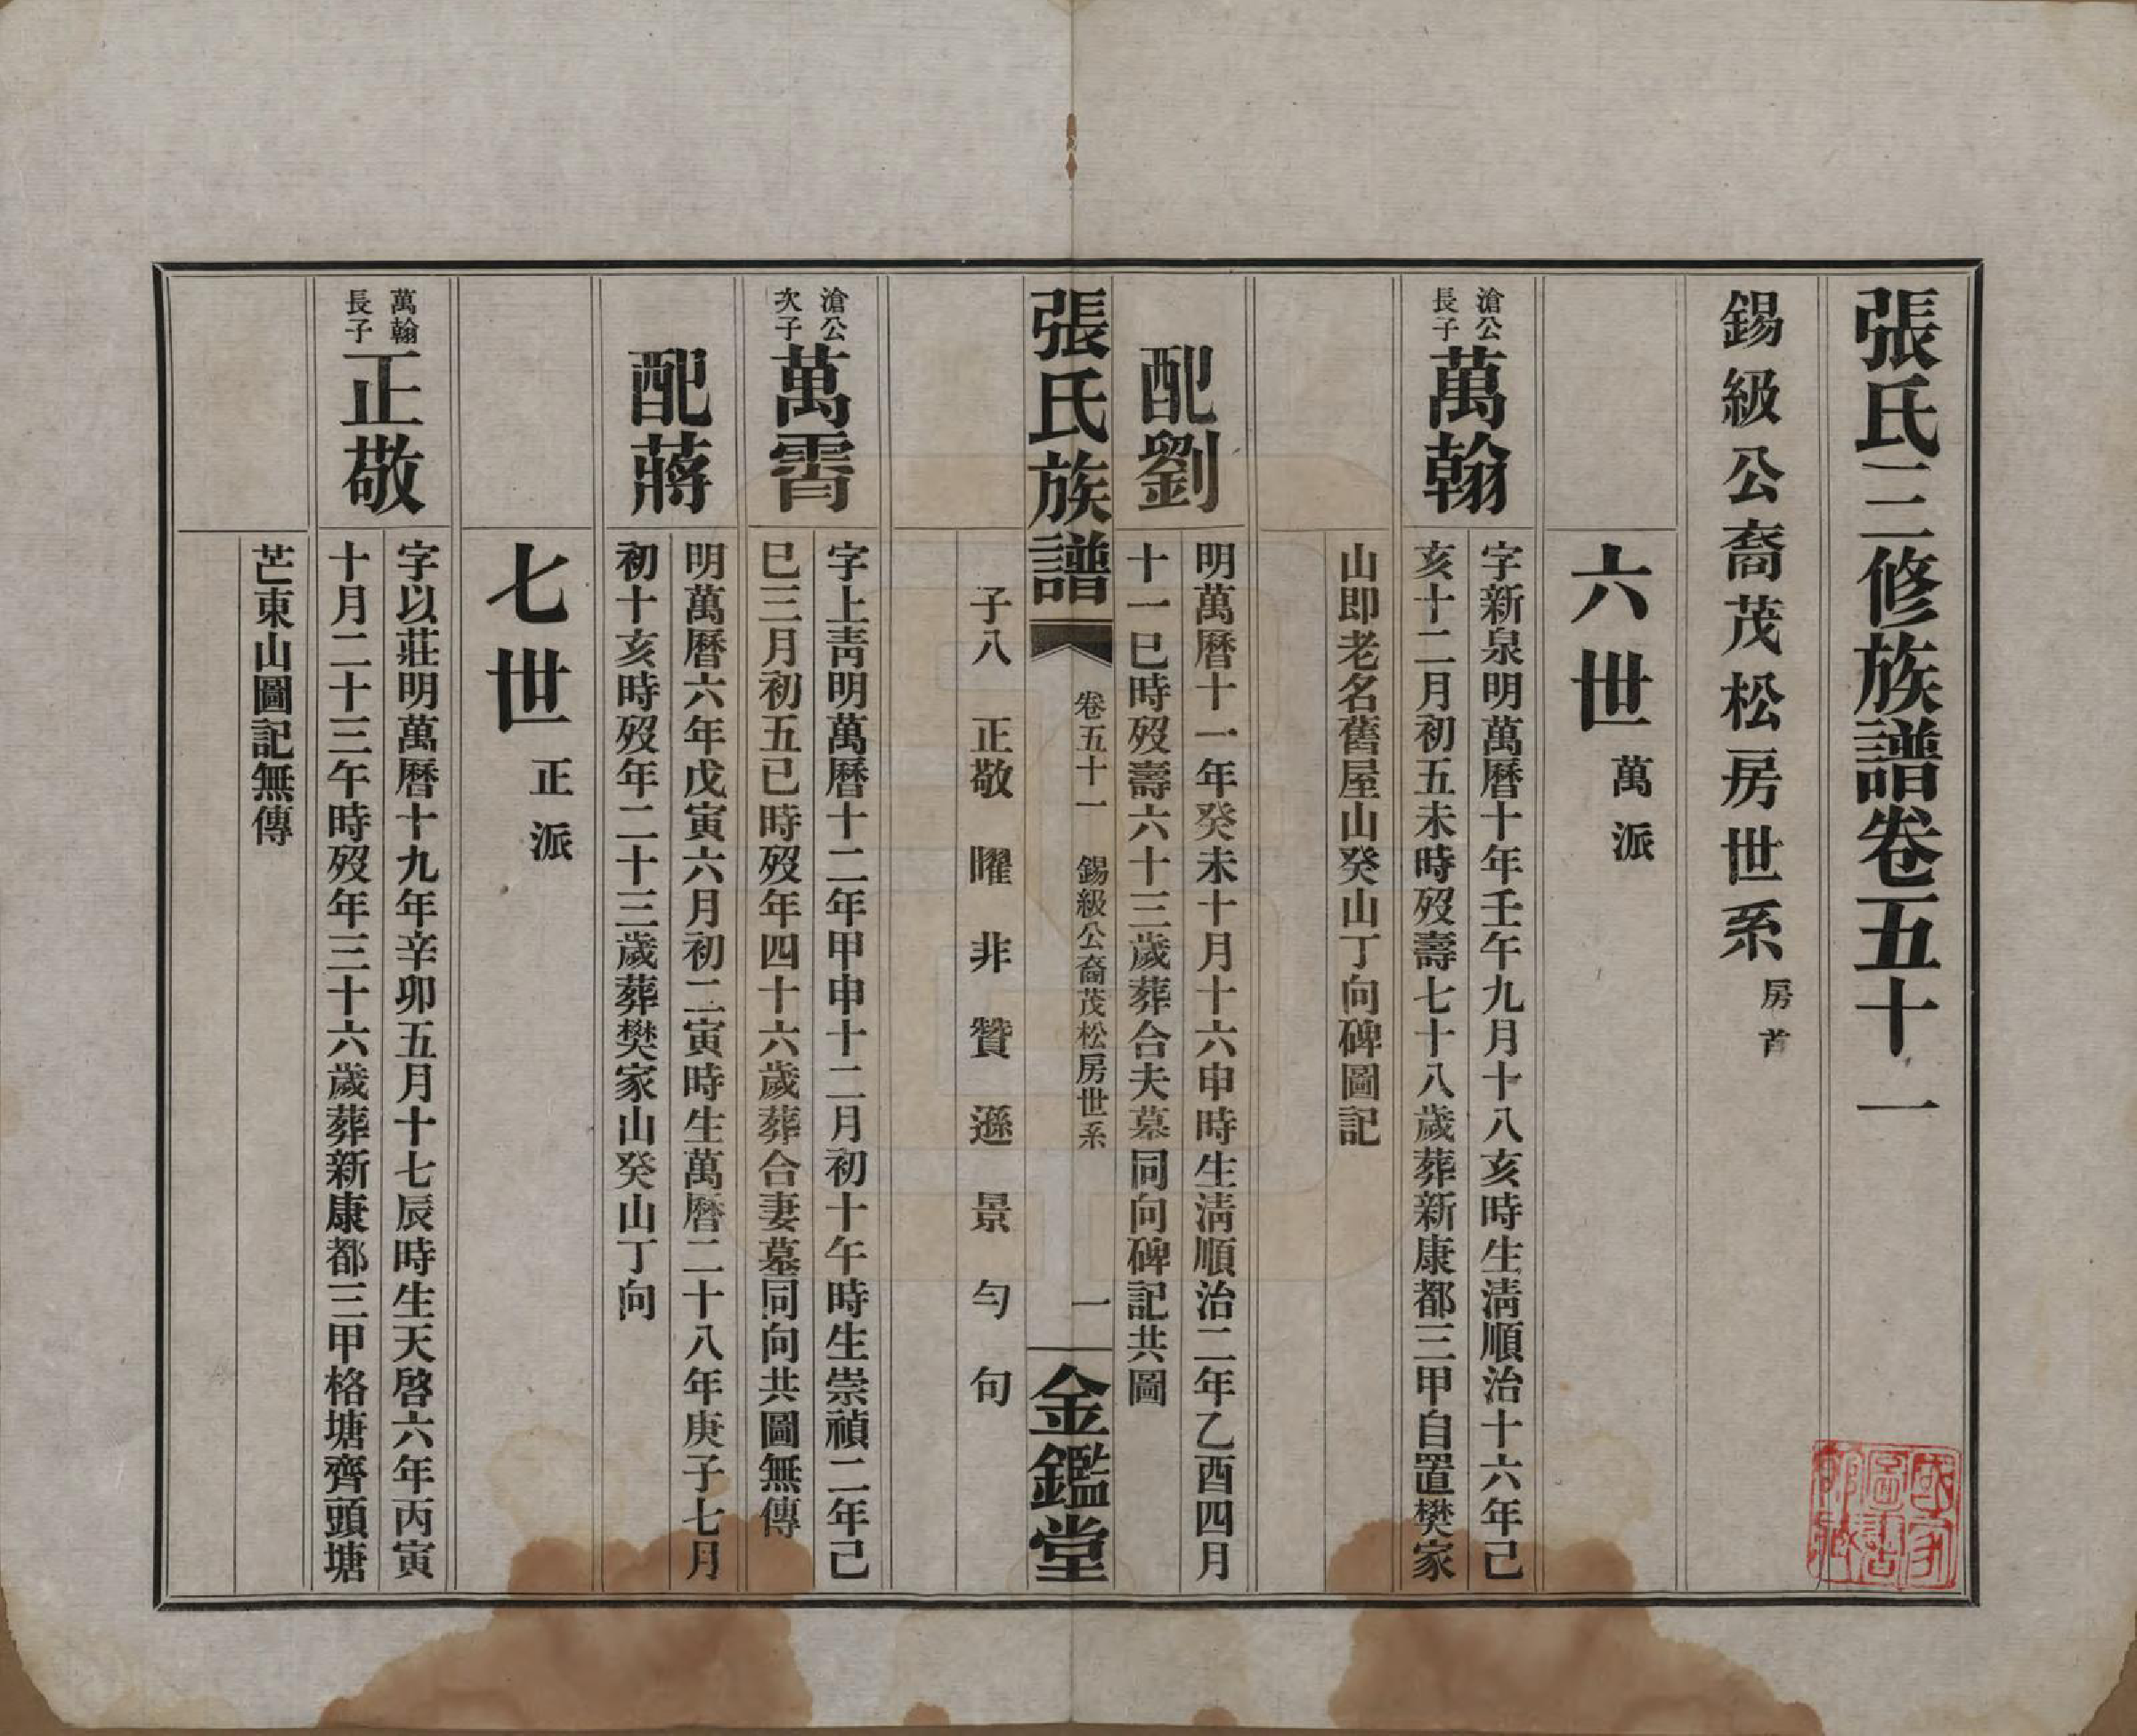 張氏三修族譜卷五十一
錫級公裔茂松房世系 房首
六世 萬派
滄公
長子
萬翰
字新泉明萬曆十年壬午九月十八亥時生清順治十六年己
亥十二月初五未時歿壽七十八歲葬新康都三甲自置樊家
山即老名舊屋山癸山丁向碑圖記
配劉
明萬曆十一年癸未十月十六申時生清順治二年乙酉四月
十一巳時歿壽六十三歲葬合夫墓同向碑記共圖
張氏族譜 卷五十一 錫級公裔茂松房世系 一 金鑑堂
子八 正敬 曜 非 贊 遜 景 勻 句
滄公
次子
萬霄
字上靑明萬曆十二年甲申十二月初十午時生崇禎二年己
巳三月初五巳時歿年四十六歲葬合妻墓同向共圖無傳
配蔣
明萬曆六年戊寅六月初二寅時生萬曆二十八年庚子七月
初十亥時歿年二十三歲葬樊家山癸山丁向
七世 正派
萬翰
長子
正敬
字以莊明萬曆十九年辛卯五月十七辰時生天啓六年丙寅
十月二十三午時歿年三十六歲葬新康都三甲格塘齊頭塘
芒東山圖記無傳
國家
圖書
館藏